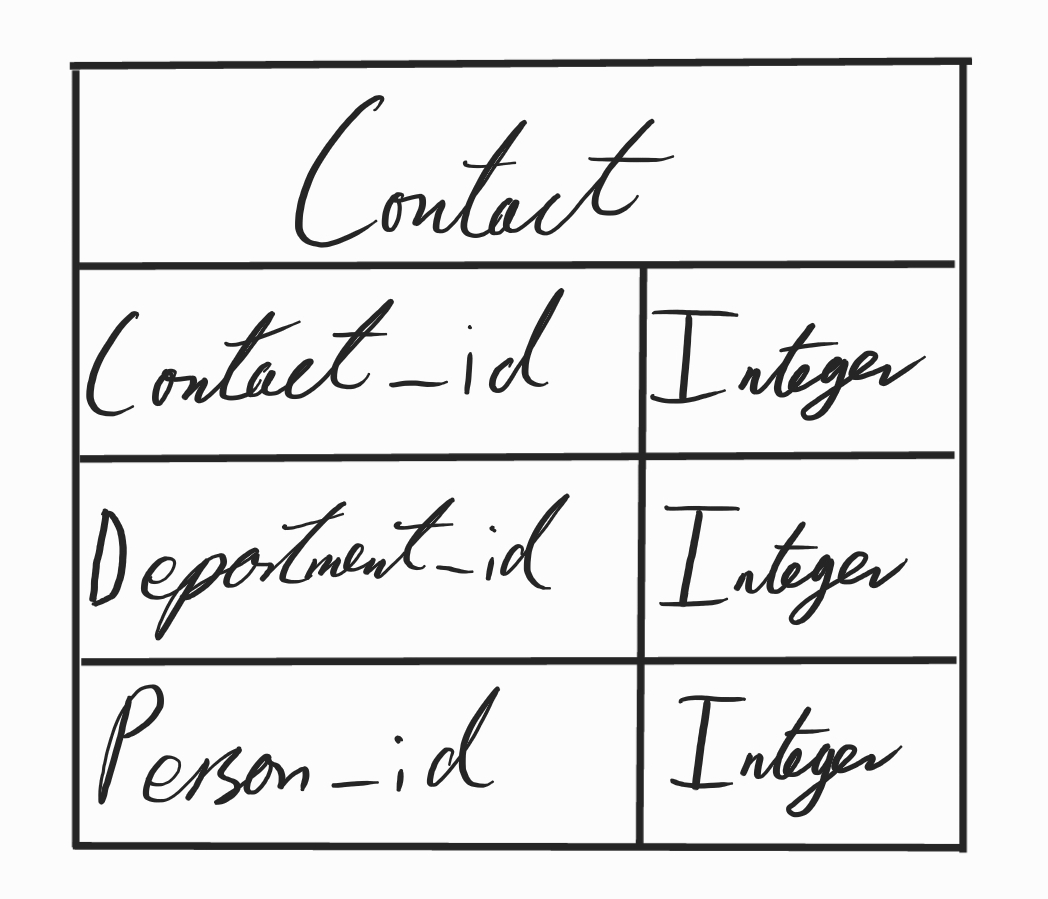 Contact
Contact_id Integer
Department_id Integer
Person_id Integer